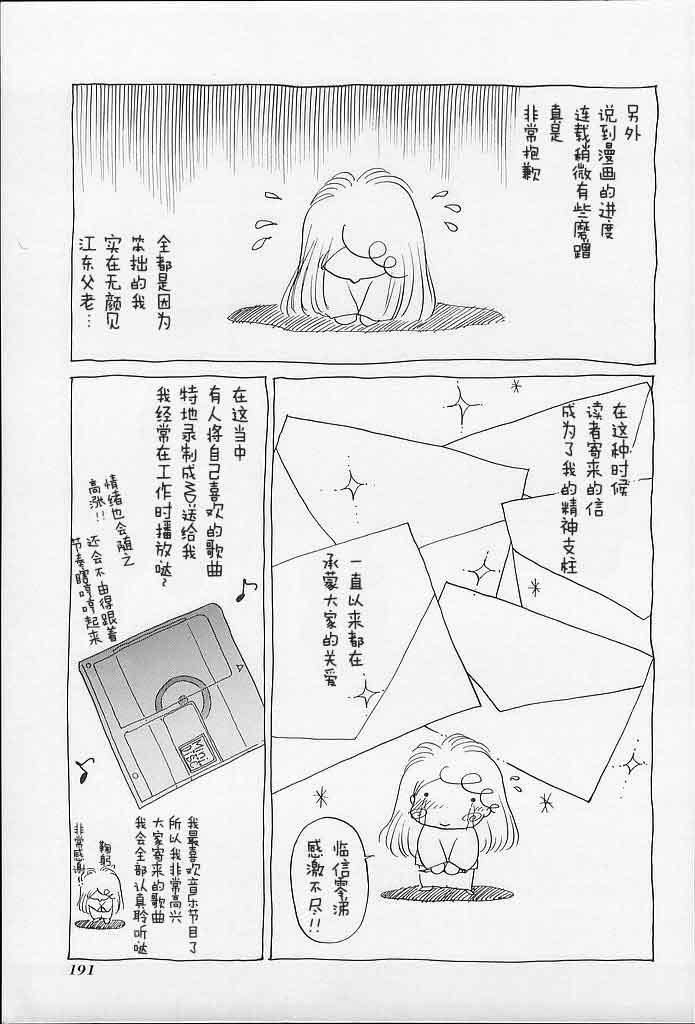 另外
说到漫画的进度
连载稍微有些磨蹭
真是
非常抱歉
全都是因为
笨拙的我
实在无颜见
江东父老…
在这种时候
读者寄来的信
成为了我的精神支柱
一直以来都在
承蒙大家的关爱
临信零涕
感激不尽!!
在这当中
有人将自己喜欢的歌曲
特地录制成MD送给我
我经常在工作时播放哒~
情绪也会随之
高涨!!
还会不由得跟着
节奏瞎哼哼起来
MINI
DISC
我最喜欢音乐节目了
所以我非常高兴
大家寄来的歌曲
我会全部认真聆听哒
鞠躬
非常感谢!!
191